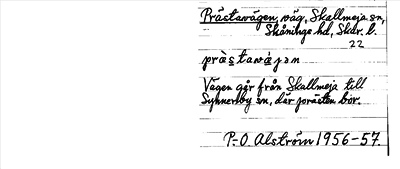 Prästavägen, väg, Skallmeja sn,
Skånings hd, Skar. l.
22
prà̀stavá̀jən
Vägen går från Skallmeja till
Synnerby sn, där prästen bor.
P.-O. Alström 1956-57.